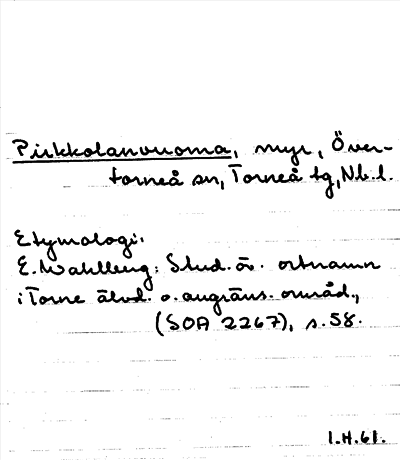 Pirkkolanvuoma, myr, Över-
torneå sn, Torneå tg, Nb.l.
Etymologi:
E. Wahlberg: Stud. öv. ortnamn
i Torne älvd. o. angräns. område,
(SOA 2267), s. 58.
I.H.61.